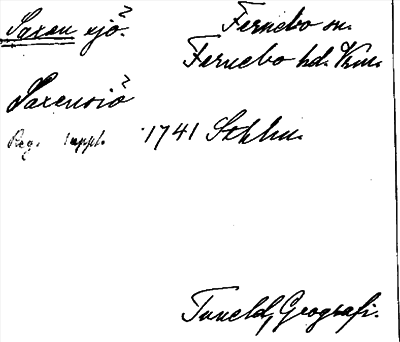 Saxen sjö. Fernebo sn.
Fernebo hd. Vrm.
Saxensiö
Reg. suppl. 1741 Sthlm.
Tuneld, Geografi.